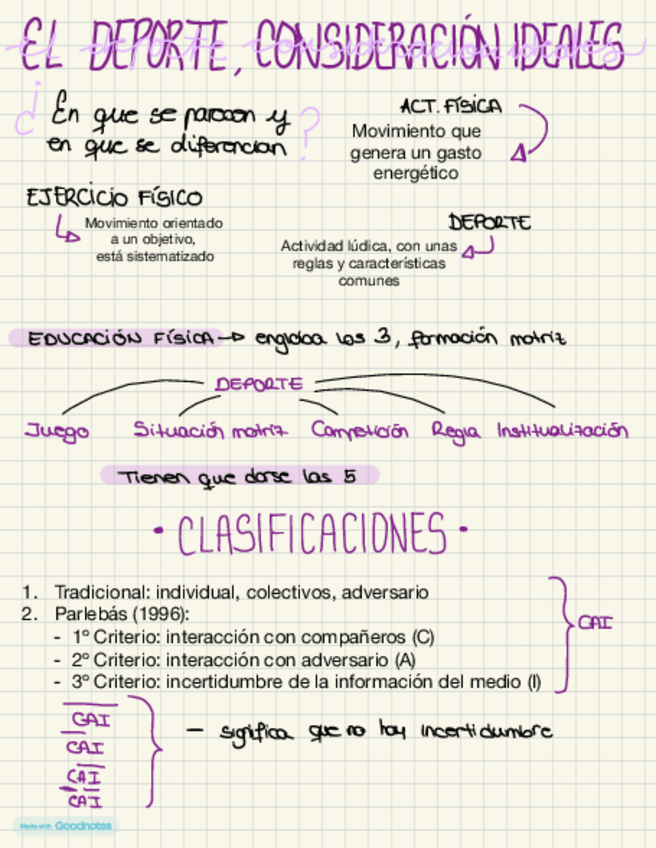 EL DEPORTE, CONSIDERACIÓN IDEALES
¿En que se parecen y
en que se diferencian?
ACT. FÍSICA
Movimiento que
genera un gasto
energético
EJERCICIO FÍSICO
Movimiento orientado
a un objetivo,
está sistematizado
DEPORTE
Actividad lúdica, con unas
reglas y características
comunes
EDUCACIÓN FÍSICA → engloba los 3, formación motriz
DEPORTE
Juego Situación motriz Competición Regla Institualización
Tienen que darse las 5
• CLASIFICACIONES •
1. Tradicional: individual, colectivos, adversario
2. Parlebás (1996):
- 1º Criterio: interacción con compañeros (C)
- 2º Criterio: interacción con adversario (A)
- 3º Criterio: incertidumbre de la información del medio (I)
CAI
CAI
CAI
CAI
CAI
— significa que no hay incertidumbre
Made with Goodnotes